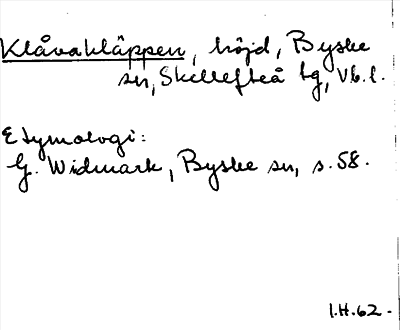 Klåvakläppen, höjd, Byske
sn, Skellefteå tg, Vb. l.
Etymologi:
G. Widmark, Byske sn, s. 58.
I.H. 62.